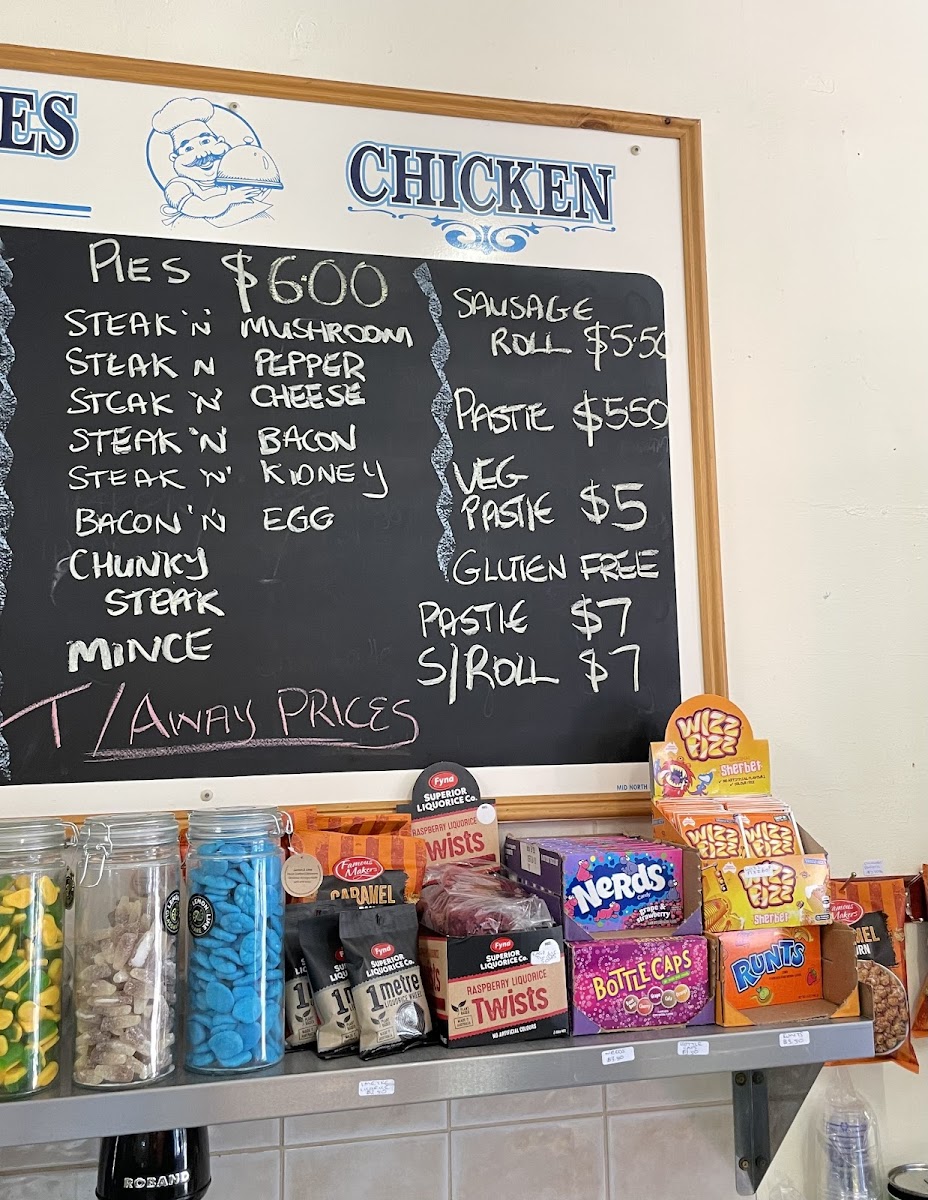 ES
CHICKEN
PIES $6.00
STEAK 'N' MUSHROOM
STEAK N PEPPER
STEAK 'N' CHEESE
STEAK 'N' BACON
STEAK 'N' KIDNEY
BACON 'N EGG
CHUNKY
STEAK
MINCE
T/AWAY PRICES
SAUSAGE
ROLL $5.50
PASTIE $5.50
VEG
PASTIE $5
GLUTEN FREE
PASTIE $7
S/ROLL $7
MID NORTH
WIZZ
FIZZ
Sherbet
WIZZ
FIZZ
WIZZ
FIZZ
WIZZ
FIZZ
Sherbet
Fyna
SUPERIOR
LIQUORICE Co.
RASPBERRY LIQUORICE
Twists
Famous
Makers
CARAMEL
Fyna
SUPERIOR
LIQUORICE Co.
1metre
Fyna
SUPERIOR
LIQUORICE Co.
RASPBERRY LIQUORICE
Twists
NO ARTIFICIAL COLOURS
NERDS
grape &
strawberry
BOTTLE CAPS
RUNTS
Famous
Makers
MEL
RN
ROBAND